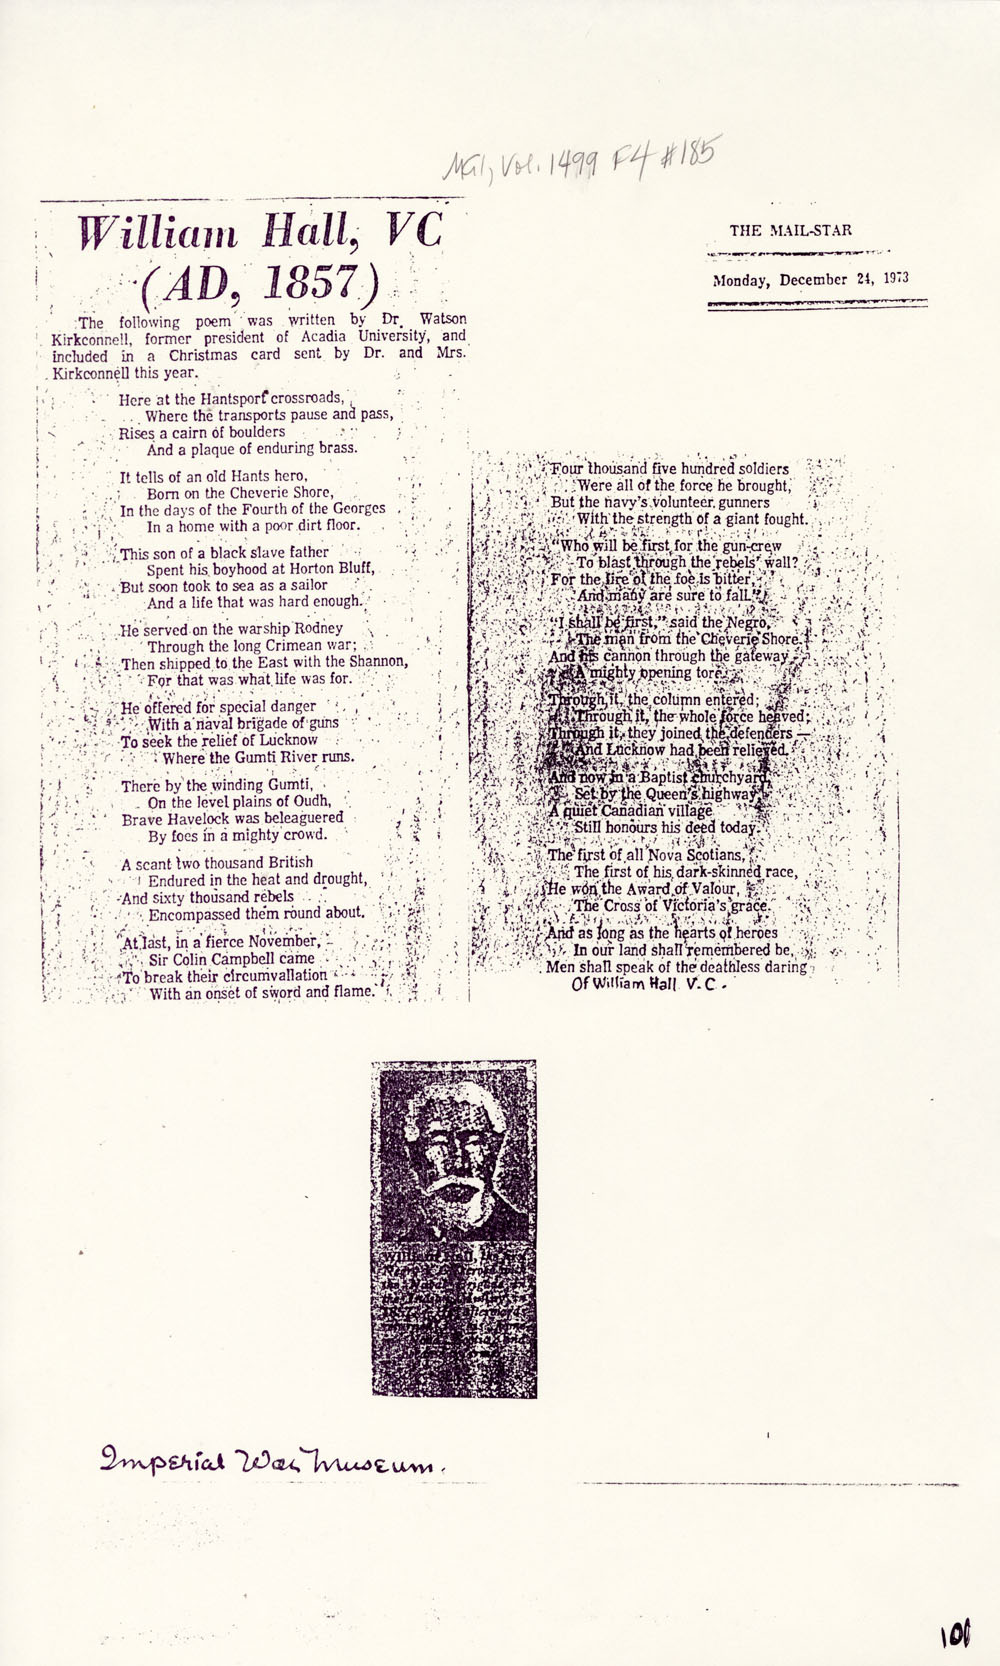 MG1, Vol. 1499 F4 #185
William Hall, VC
(AD, 1857)
THE MAIL-STAR
Monday, December 24, 1973
The following poem was written by Dr. Watson
Kirkconnell, former president of Acadia University, and
included in a Christmas card sent by Dr. and Mrs.
Kirkconnell this year.
Here at the Hantsport crossroads,
Where the transports pause and pass,
Rises a cairn of boulders
And a plaque of enduring brass.
It tells of an old Hants hero,
Born on the Cheverie Shore,
In the days of the Fourth of the Georges
In a home with a poor dirt floor.
This son of a black slave father
Spent his boyhood at Horton Bluff,
But soon took to sea as a sailor
And a life that was hard enough.
He served on the warship Rodney
Through the long Crimean war;
Then shipped to the East with the Shannon,
For that was what life was for.
He offered for special danger
With a naval brigade of guns
To seek the relief of Lucknow
Where the Gumti River runs.
There by the winding Gumti,
On the level plains of Oudh,
Brave Havelock was beleaguered
By foes in a mighty crowd.
A scant two thousand British
Endured in the heat and drought,
And sixty thousand rebels
Encompassed them round about.
At last, in a fierce November,
Sir Colin Campbell came
To break their circumvallation
With an onset of sword and flame.
Four thousand five hundred soldiers
Were all of the force he brought,
But the navy's volunteer gunners
With the strength of a giant fought.
"Who will be first for the gun-crew
To blast through the rebels' wall?
For the fire of the foe is bitter,
And many are sure to fall."
"I shall be first," said the Negro,
The man from the Cheverie Shore.
And his cannon through the gateway
A mighty opening tore.
Through it, the column entered;
Through it, the whole force heaved;
Through it, they joined the defenders —
And Lucknow had been relieved.
And now in a Baptist churchyard,
Set by the Queen's highway,
A quiet Canadian village
Still honours his deed today.
The first of all Nova Scotians,
The first of his dark-skinned race,
He won the Award of Valour,
The Cross of Victoria's grace.
And as long as the hearts of heroes
In our land shall remembered be,
Men shall speak of the deathless daring
Of William Hall V.C.
William Hall, the first
Imperial War Museum.
101